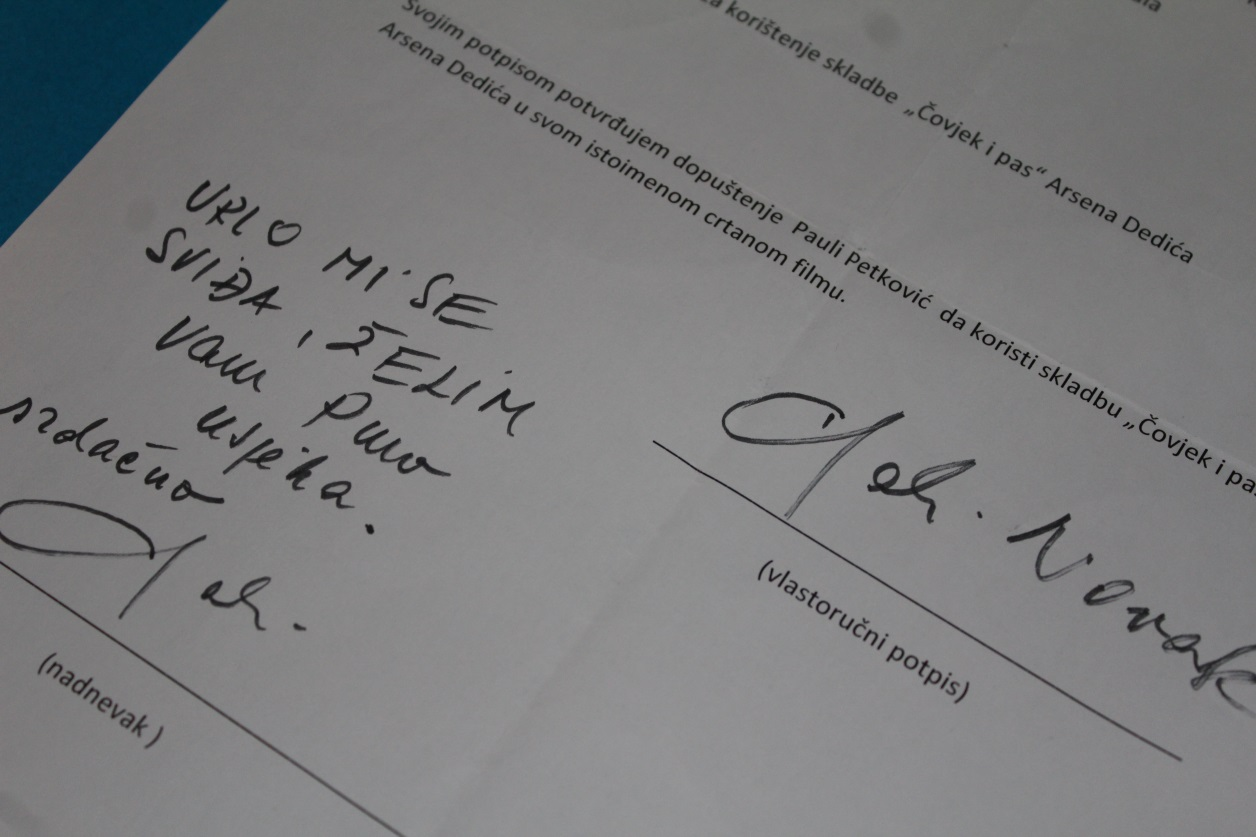 za korištenje skladbe „Čovjek i pas“ Arsena Dedića
Svojim potpisom potvrđujem dopuštenje Pauli Petković da koristi skladbu „Čovjek i pas
Arsena Dedića u svom istoimenom crtanom filmu.
VRLO MI SE
SVIĐA, ŽELIM
Vam puno
uspjeha.
srdačno
Novak
(vlastoručni potpis)
(nadnevak )